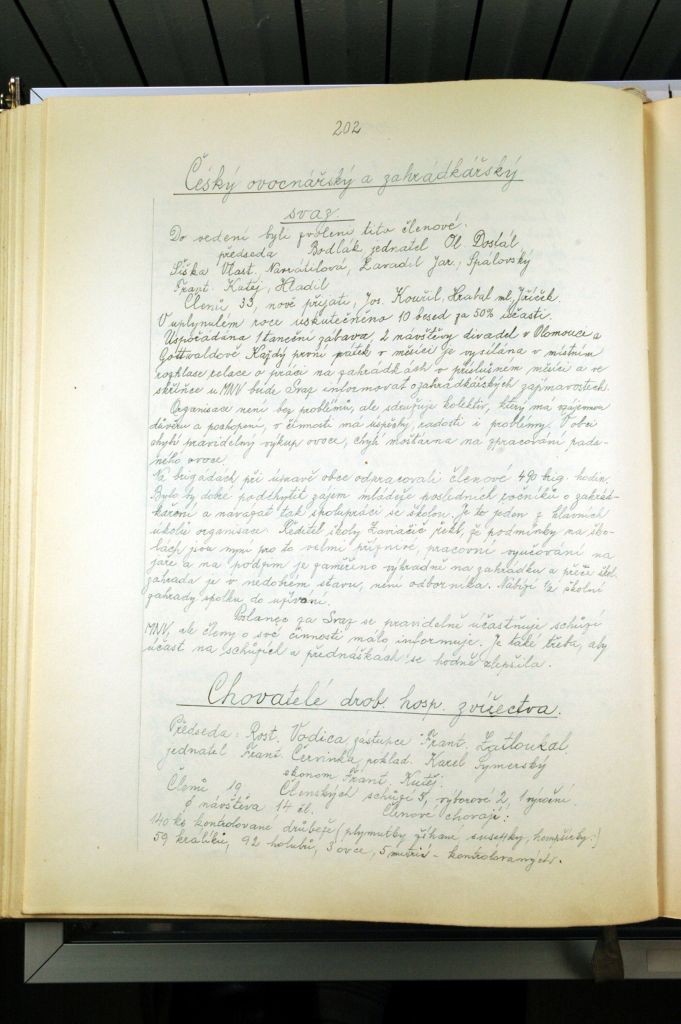 202
Český ovocnářský a zahrádkářský
svaz.
Do vedení byli zvoleni tito členové:
předseda Bodlák, jednatel Ol. Dostál
Šiška Vlast. Navrátilová, Zavadil Jar., Spálovský
Frant. Kutěj, Hladil
Členů 33, nově přijati, Jos. Kouřil, Hrabal ml, Jříček.
V uplynulém roce uskutečněno 10 besed za 50% účasti.
Uspořádána 1 taneční zábava, 2 návštěvy divadel v Olomouci a
Gottwaldově. Každý první pátek v měsíci je vysílána v místním
rozhlase relace o práci na zahrádkách v příslušném měsíci a ve
skříňce u MNV bude Svaz informovat o zahrádkářských zajímavostech.
Organisace není bez problémů, ale sdružuje kolektiv, který má vzájemnou
důvěru a pochopení, v činnosti má úspěchy, radosti i problémy. V obci
chybí pravidelný výkup ovoce, chybí moštárna na zpracování pada-
ného ovoce.
Na brigádách při úpravě obce odpracovali členové 490 brig. hodin.
Bylo by dobré podchytit zájem mládeže posledních ročníků o zahrád-
kaření a navázat tak spolupráci se školou. Je to jeden z hlavních
úkolů organisace. Ředitel školy Zaviačič řekl, že podmínky na ško-
lách jsou nyní pro to velmi příznivé, pracovní vyučování na
jaře a na podzim je zaměřeno výhradně na zahrádku a péče škol.
zahrada je v nedobrém stavu, není odborníka. Nabízí 1/2 školní
zahrady spolku do užívání.
Polanec za Svaz se pravidelně účastňuje schůzí
MNV, ale členy o své činnosti málo informuje. Je také třeba, aby
účast na schůzích a přednáškách se hodně zlepšila.
Chovatelé drob. hosp. zvířectva.
Předseda: Rost. Vodica zástupce Frant. Zatloukal,
jednatel Frant. Červinka, poklad. Karel Symerský
ekonom Frant. Kutěj.
Členů 19 Členských schůzí 3, výborové 2, 1 výroční.
ø návštěva 14 čl. Členové chovají:
140 ks kontrolované drůbeže (plymutky žíhané susexky, hempšírky:)
59 králíků, 92 holubů, 3 ovce, 5 nutrií - kontrolovaných.